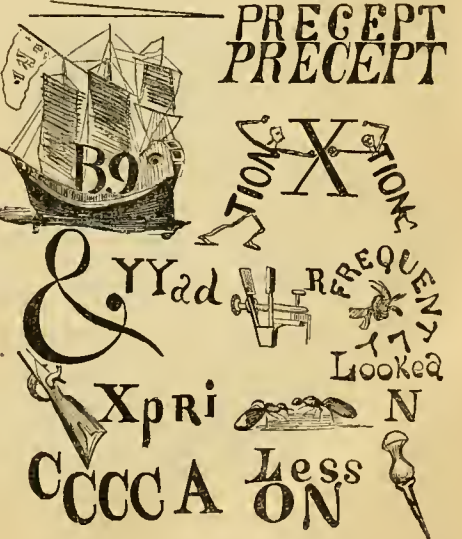 PRECEPT
PRECEPT
B.9
TION X TION
& YYad
R FREQUENTLY
Looked
XpRi
N
CCCCC A
Less
ON